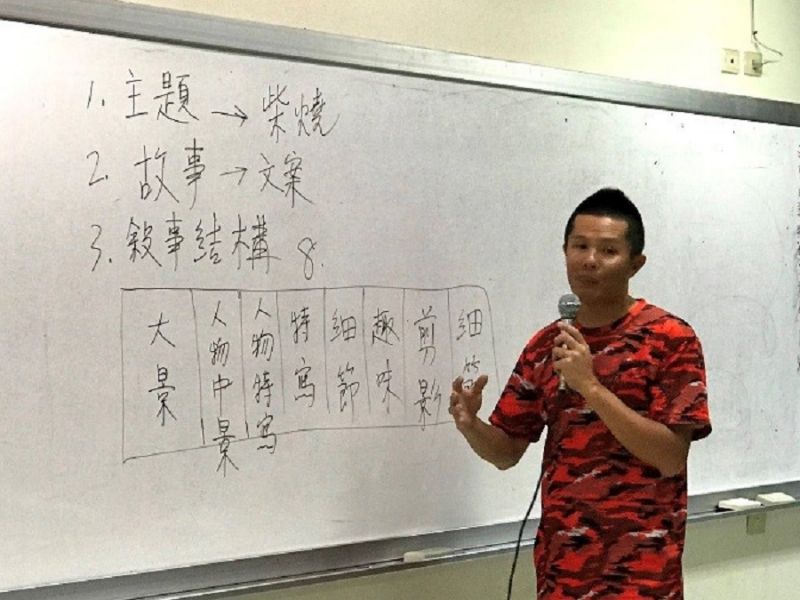 1. 主題 → 柴燒
2. 故事 → 文案
3. 敘事結構 8.
大景
人物中景
人物特寫
特寫
細節
趣味
剪影
細節